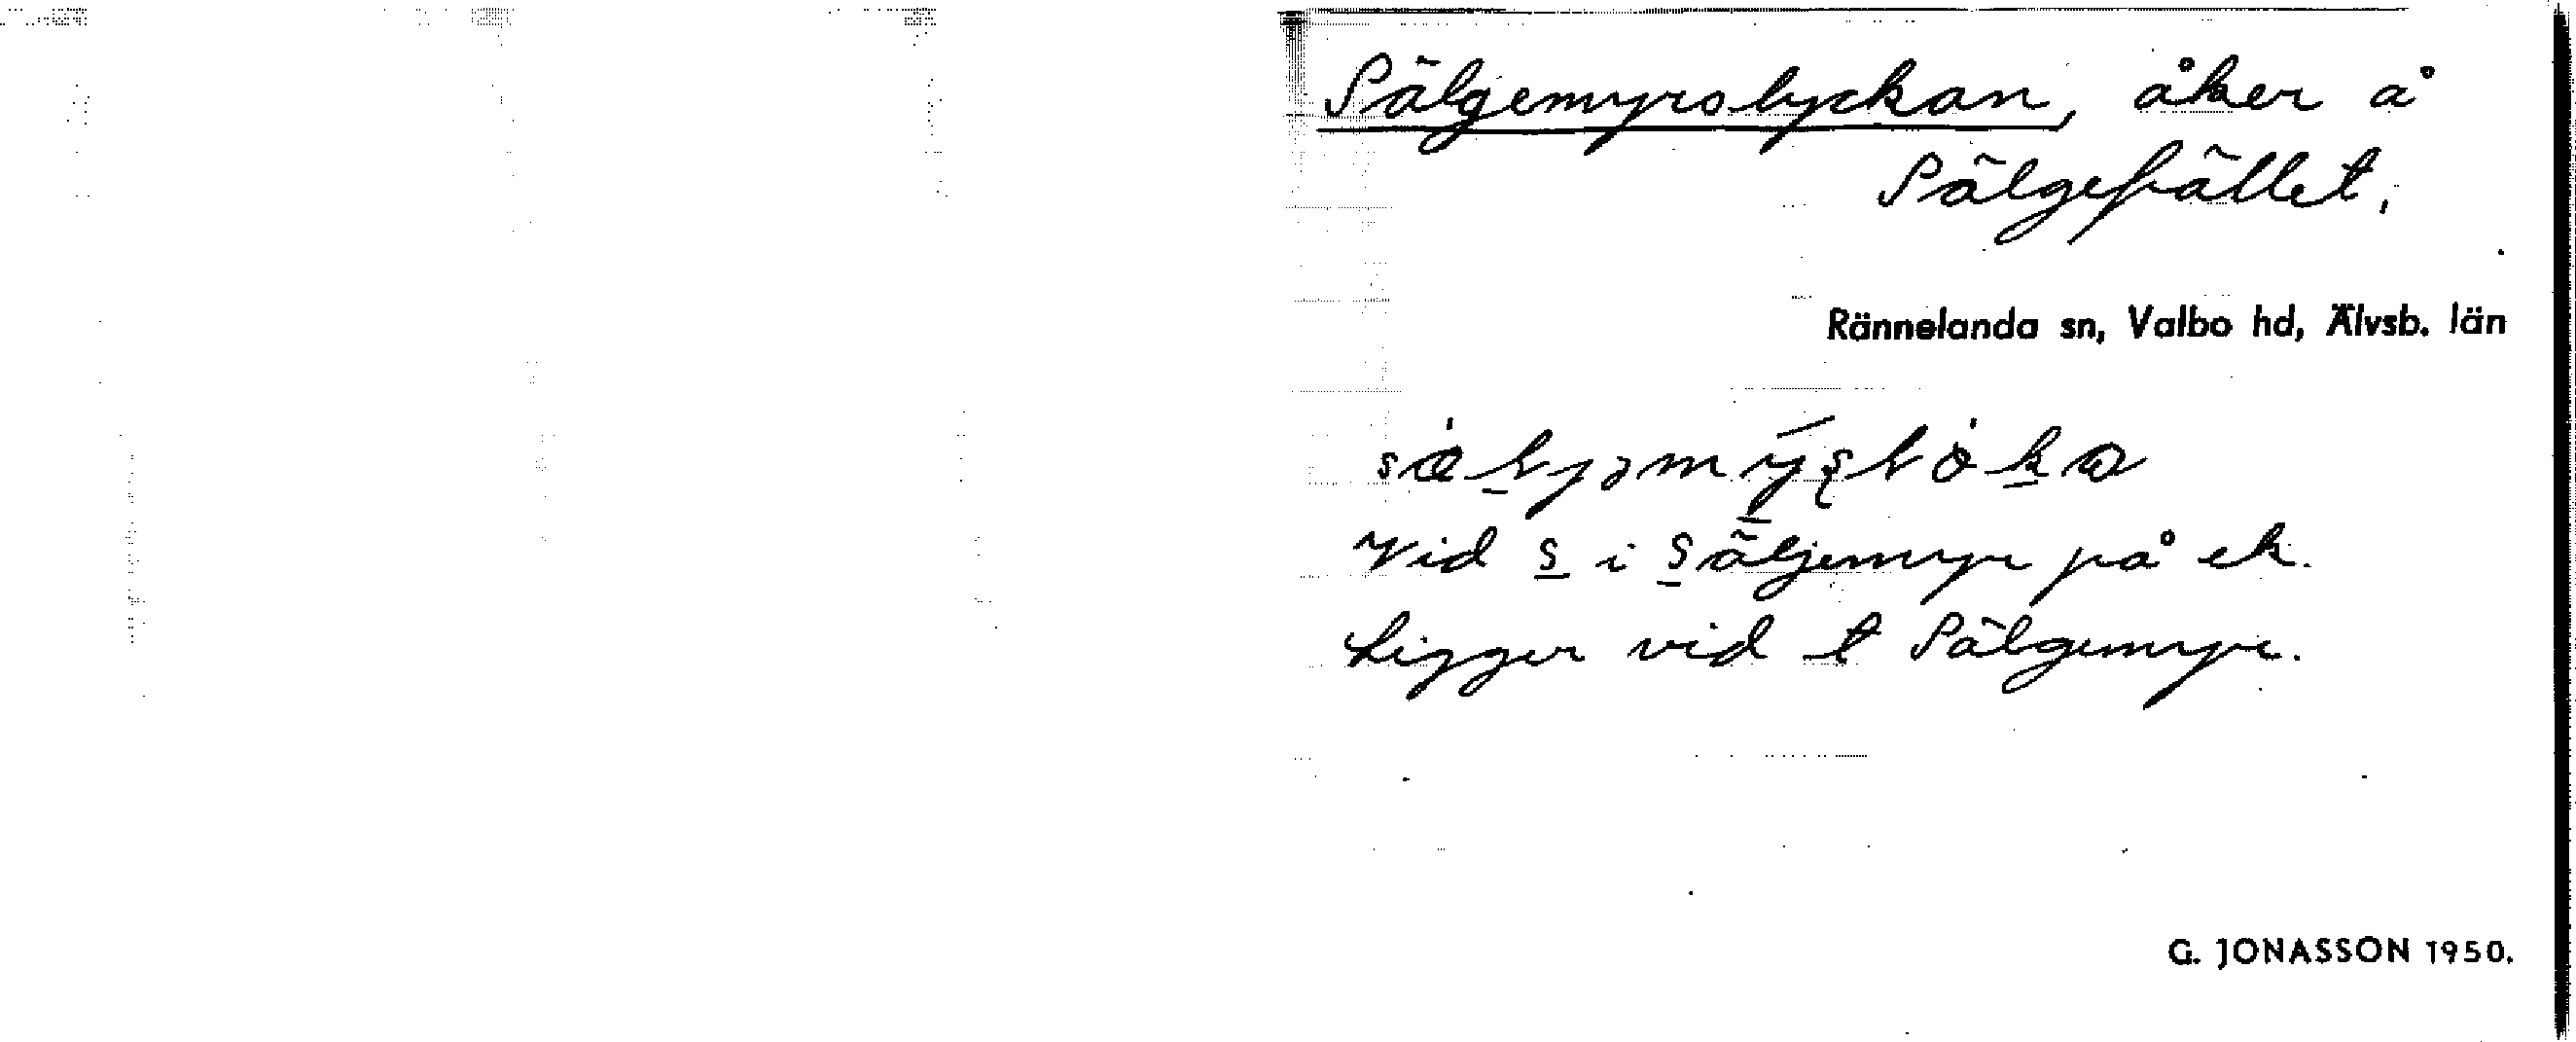 Sälgemyrslyckan, åker å
Sälgefjället.
Rännelanda sn, Valbo hd, Älvsb. län
Vid s i Säljemyr på ek.
Ligger vid t Sälgemyr.
G. JONASSON 1950.